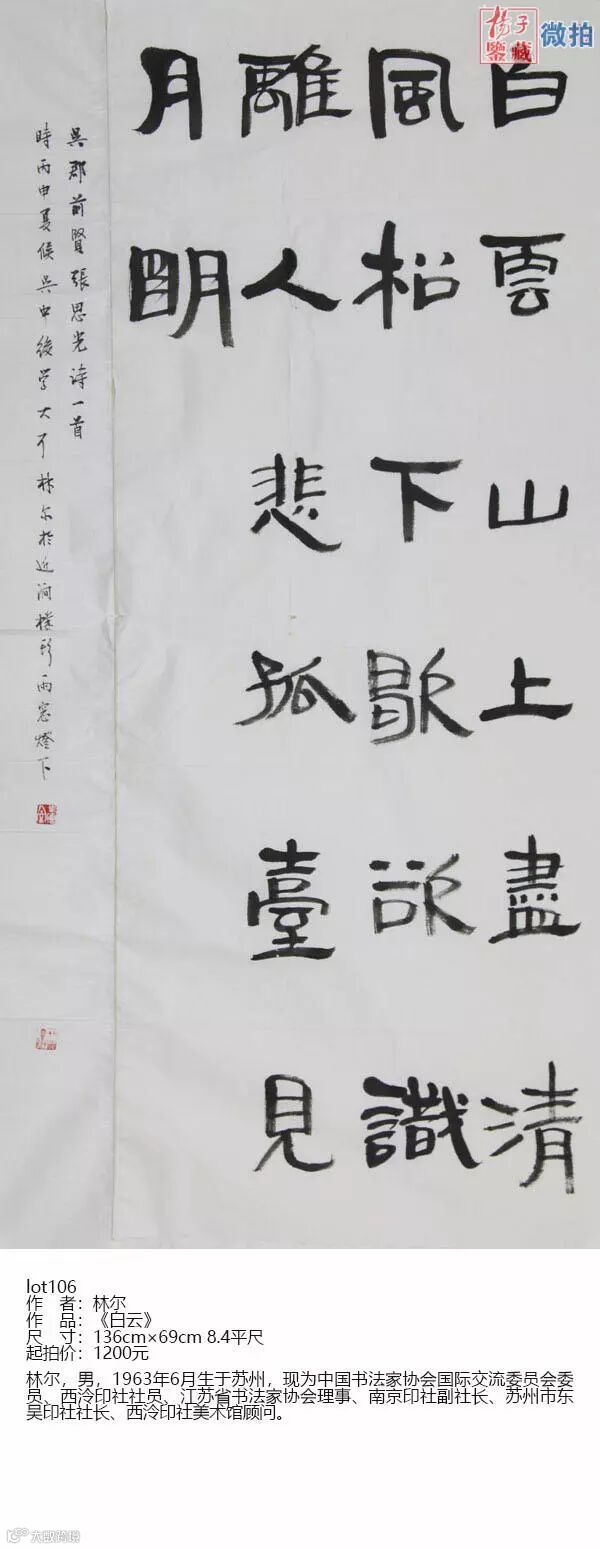 楊子
鑒藏
微拍
白雲山上盡清
風松下歇欲識
離人悲孤臺見
月明
吳郡前賢張思光诗一首
時丙申夏候吳中後学大可林尔於近润樸彰雨窓燈下
lot106
作 者：林尔
作 品：《白云》
尺 寸：136cm×69cm 8.4平尺
起拍价：1200元
林尔，男，1963年6月生于苏州，现为中国书法家协会国际交流委员会委
员、西泠印社社员、江苏省书法家协会理事、南京印社副社长、苏州市东
吴印社社长、西泠印社美术馆顾问。
大数跨境